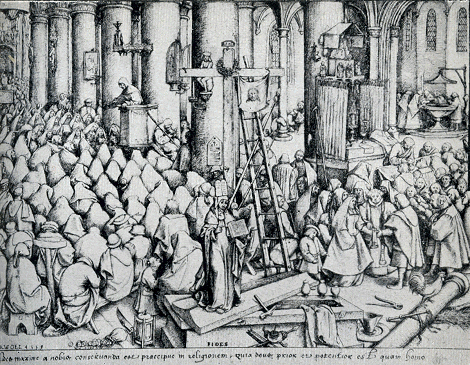 1559
FIDES
des maxime a nobis conseruanda est praecipue in religionem, quia deus prior et potentior est quam homo